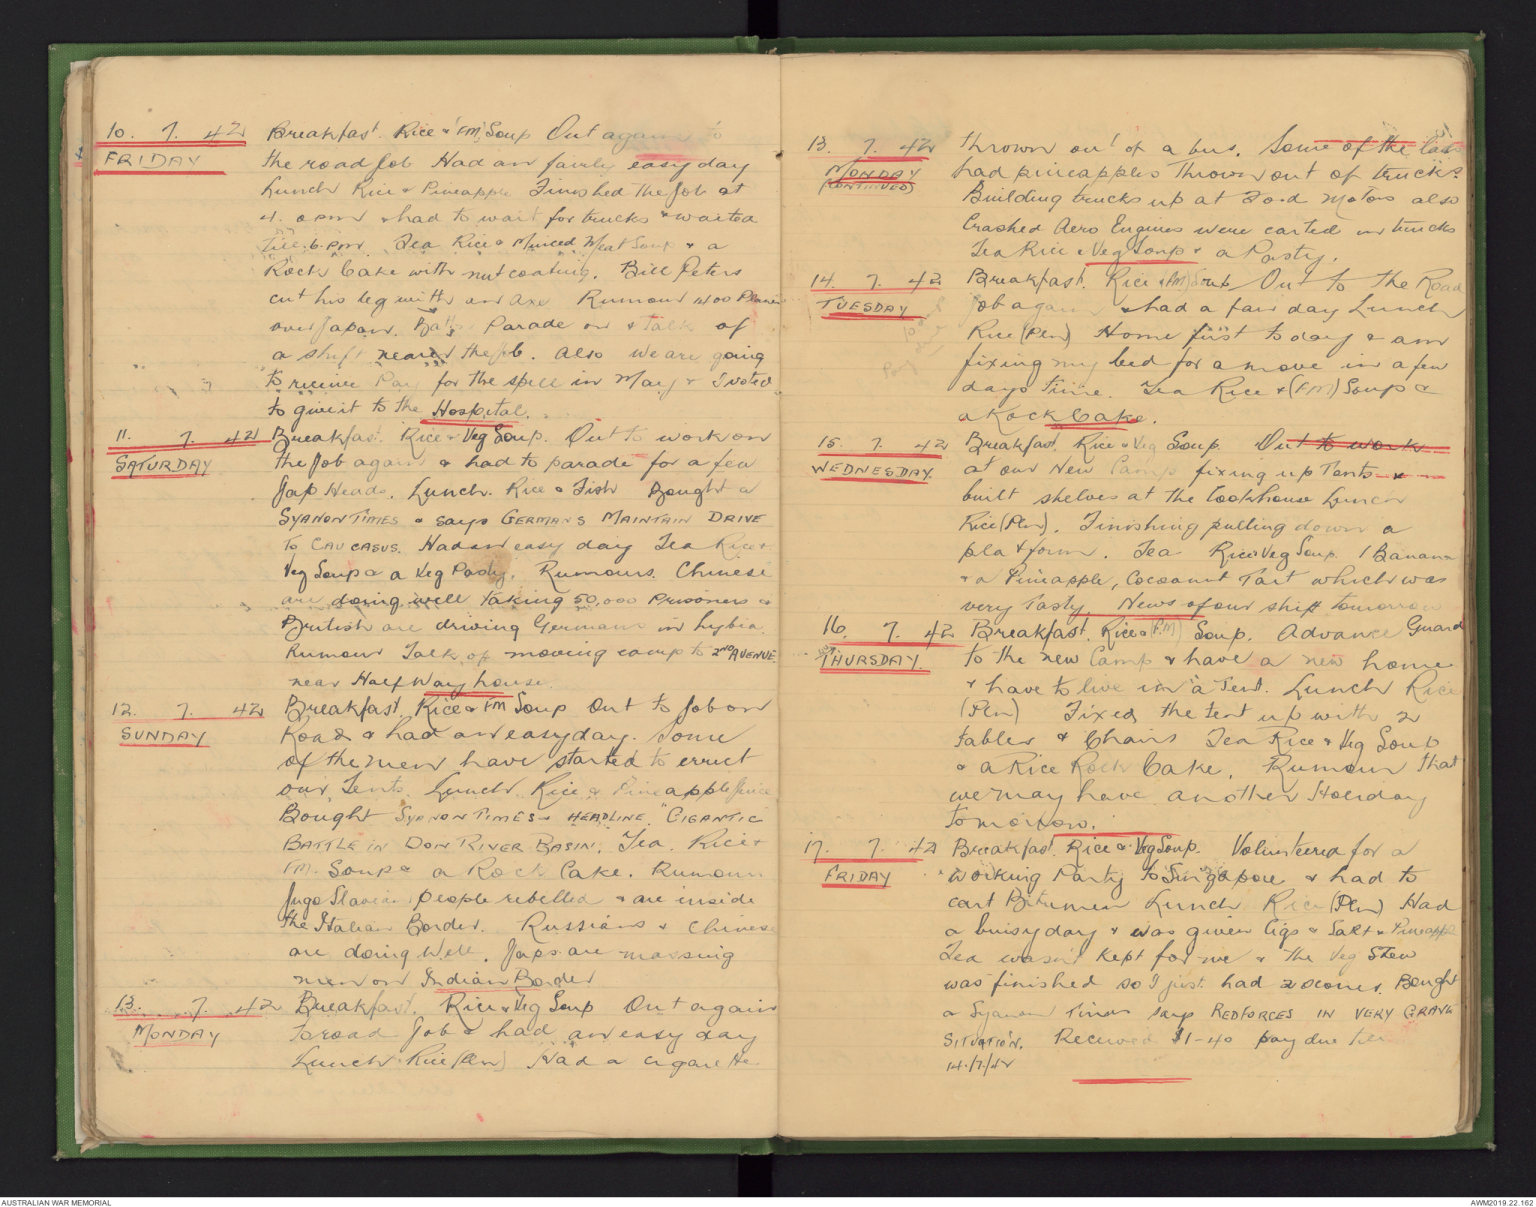 10. 7. 42 Breakfast. Rice & "FM" Soup Out again to
FRIDAY the road Job Had an fairly easy day
Lunch Rice & Pineapple Finished the Job at
4. 0 pm & had to wait for trucks & waited
till 6. pm. Tea Rice & Minced Meat Soup & a
Rock Cake with nut coating. Bill Peters
cut his leg with an axe Rumour 400 Planes
over Japan. Parade on & talk of
a shift nearer the Job. Also We are going
to receive Pay for the spell in May & I voted
to give it to the Hospital.
11. 7. 42 Breakfast. Rice & Veg Soup. Out to work on
SATURDAY the Job again & had to parade for a few
Jap Heads. Lunch. Rice & Fish Bought a
SYANON TIMES & says GERMANS MAINTAIN DRIVE
TO CAUCASUS. Had an easy day Tea Rice &
Veg Soup & a Veg Pasty. Rumours. Chinese
are doing well taking 50,000 Prisoners &
British are driving Germans in Lybia.
Rumour Talk of moving camp to 2ND AVENUE
near Half Way house.
12. 7. 42 Breakfast, Rice & FM Soup Out to Job on
SUNDAY Road & had an easy day. Some
of the men have started to errect
our Tents. Lunch Rice & Pineapple Juice
Bought SYANON TIMES & HEADLINE "GIGANTIC
BATTLE IN DON RIVER BASIN. Tea. Rice &
FM. Soup & a Rock Cake. Rumour
Jugo Slavian people rebelled & are inside
the Italian Border. Russians & Chinese
are doing Well. Japs are massing
men on Indian Border
13. 7. 42 Breakfast. Rice & Veg Soup Out again
MONDAY to road Job & had an easy day
Lunch Rice (Plen) Had a cigarette
13. 7. 42 thrown out of a bus. Some of the lads
MONDAY had pineapples thrown out of trucks.
(CONTINUED) Building trucks up at Ford Motors also
Crashed Aero Engines were carted in trucks
Tea Rice & Veg Soup & a Pasty.
14. 7. 42 Breakfast. Rice & (FM) Soup. Out to the Road
TUESDAY Job again & had a fair day Lunch
Rice (Plen) Home first to day & am
fixing my bed for a move in a few
days time. Tea Rice & (FM) Soup &
a Rock Cake.
15. 7. 42 Breakfast. Rice & Veg Soup. Out to work
WEDNESDAY. at our New Camp fixing up Tents &
built shelves at the Cookhouse Lunch
Rice (Plen). Finishing pulling down a
platform. Tea Rice & Veg Soup. 1 Banana
& a Pineapple, Cocoanut Tart which was
very Tasty. News of our shift tomorrow
16. 7. 42 Breakfast. Rice & (F.M) Soup. Advance Guard
THURSDAY. to the new Camp & have a new home
& have to live in a Tent. Lunch Rice
(Plen) Fixed the tent up with 2
tables & Chairs Tea Rice & Veg Soup
& a Rice Rock Cake. Rumour that
we may have another Holiday
tomorrow.
17. 7. 42 Breakfast. Rice & Veg Soup. Volunteered for a
FRIDAY working Party to Singapore & had to
cart Bitumen Lunch Rice (Plen) Had
a buisy day & was given Cigs & Salt & Pineapple
Tea wasn't kept for me & the Veg Stew
was finished so I just had 2 scones. Bought
a Syanon Times says RED FORCES IN VERY GRAVE
SITUATION. Received $1-40 pay due till
14/7/42
AUSTRALIAN WAR MEMORIAL
AWM2019.22.162